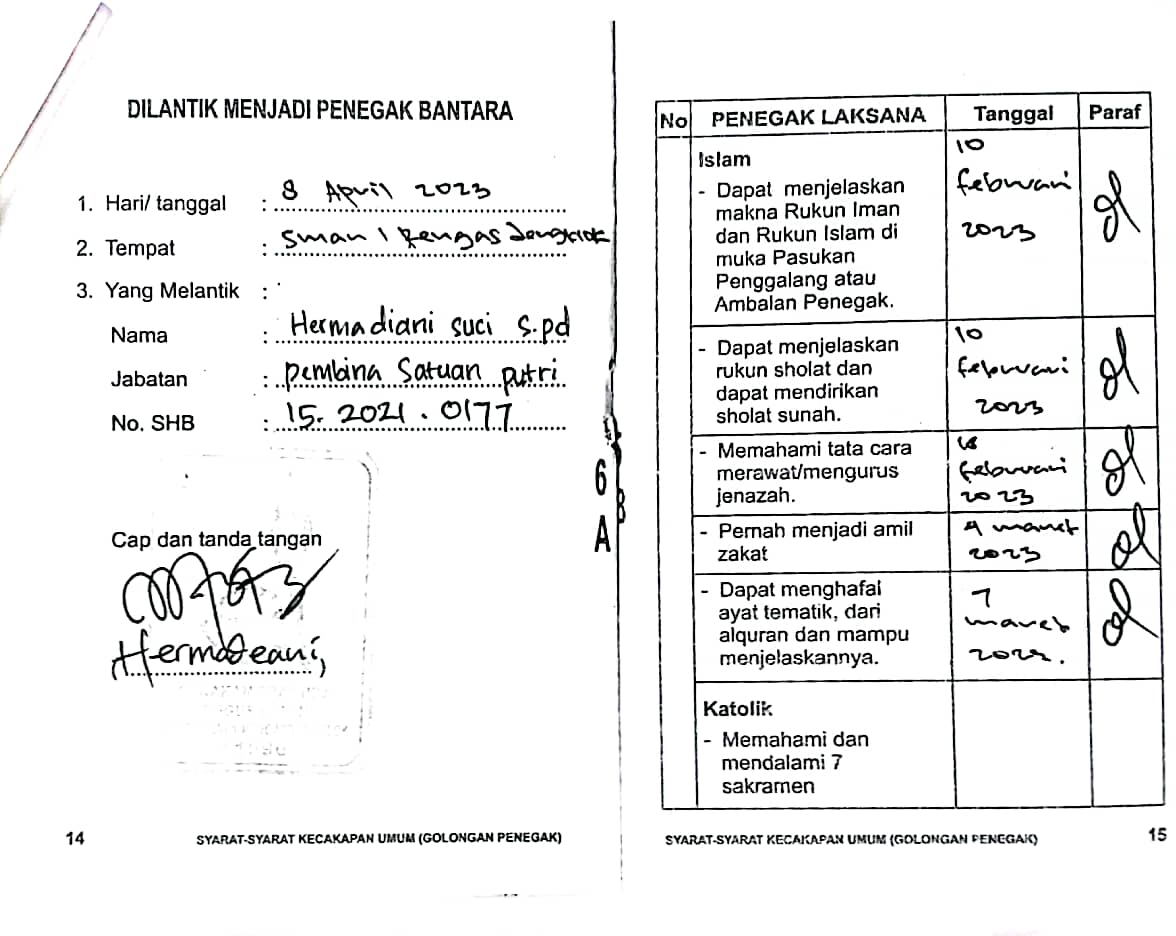 DILANTIK MENJADI PENEGAK BANTARA
1. Hari/ tanggal : 8 April 2023
2. Tempat : Sman 1 Rengasdengklok
3. Yang Melantik :
Nama : Hermadiani suci S.pd
Jabatan : pembina Satuan putri
No. SHB : 15. 2021 . 0177
Cap dan tanda tangan
Hermadeani,
14
SYARAT-SYARAT KECAKAPAN UMUM (GOLONGAN PENEGAK)
6
A
No PENEGAK LAKSANA Tanggal Paraf
Islam
- Dapat menjelaskan
makna Rukun Iman
dan Rukun Islam di
muka Pasukan
Penggalang atau
Ambalan Penegak.
10
februari
2023
- Dapat menjelaskan
rukun sholat dan
dapat mendirikan
sholat sunah.
10
februari
2023
- Memahami tata cara
merawat/mengurus
jenazah.
februari
2023
- Pernah menjadi amil
zakat
4 maret
2023
- Dapat menghafal
ayat tematik, dari
alquran dan mampu
menjelaskannya.
7
maret
Katolik
- Memahami dan
mendalami 7
sakramen
SYARAT-SYARAT KECAKAPAN UMUM (GOLONGAN PENEGAK)
15